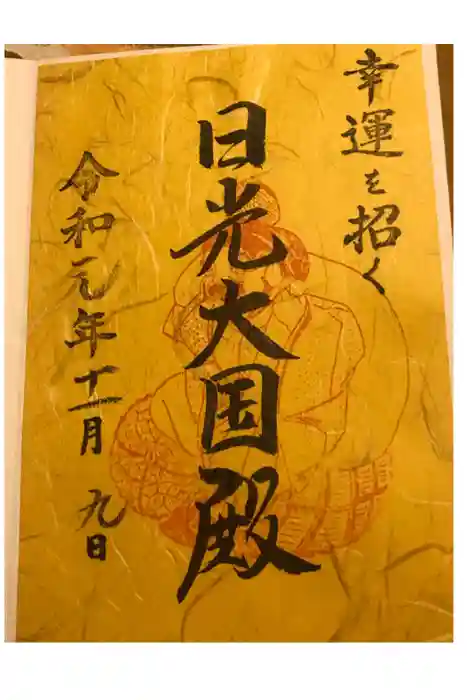 幸運を招く
日光大国殿
令和元年十一月九日